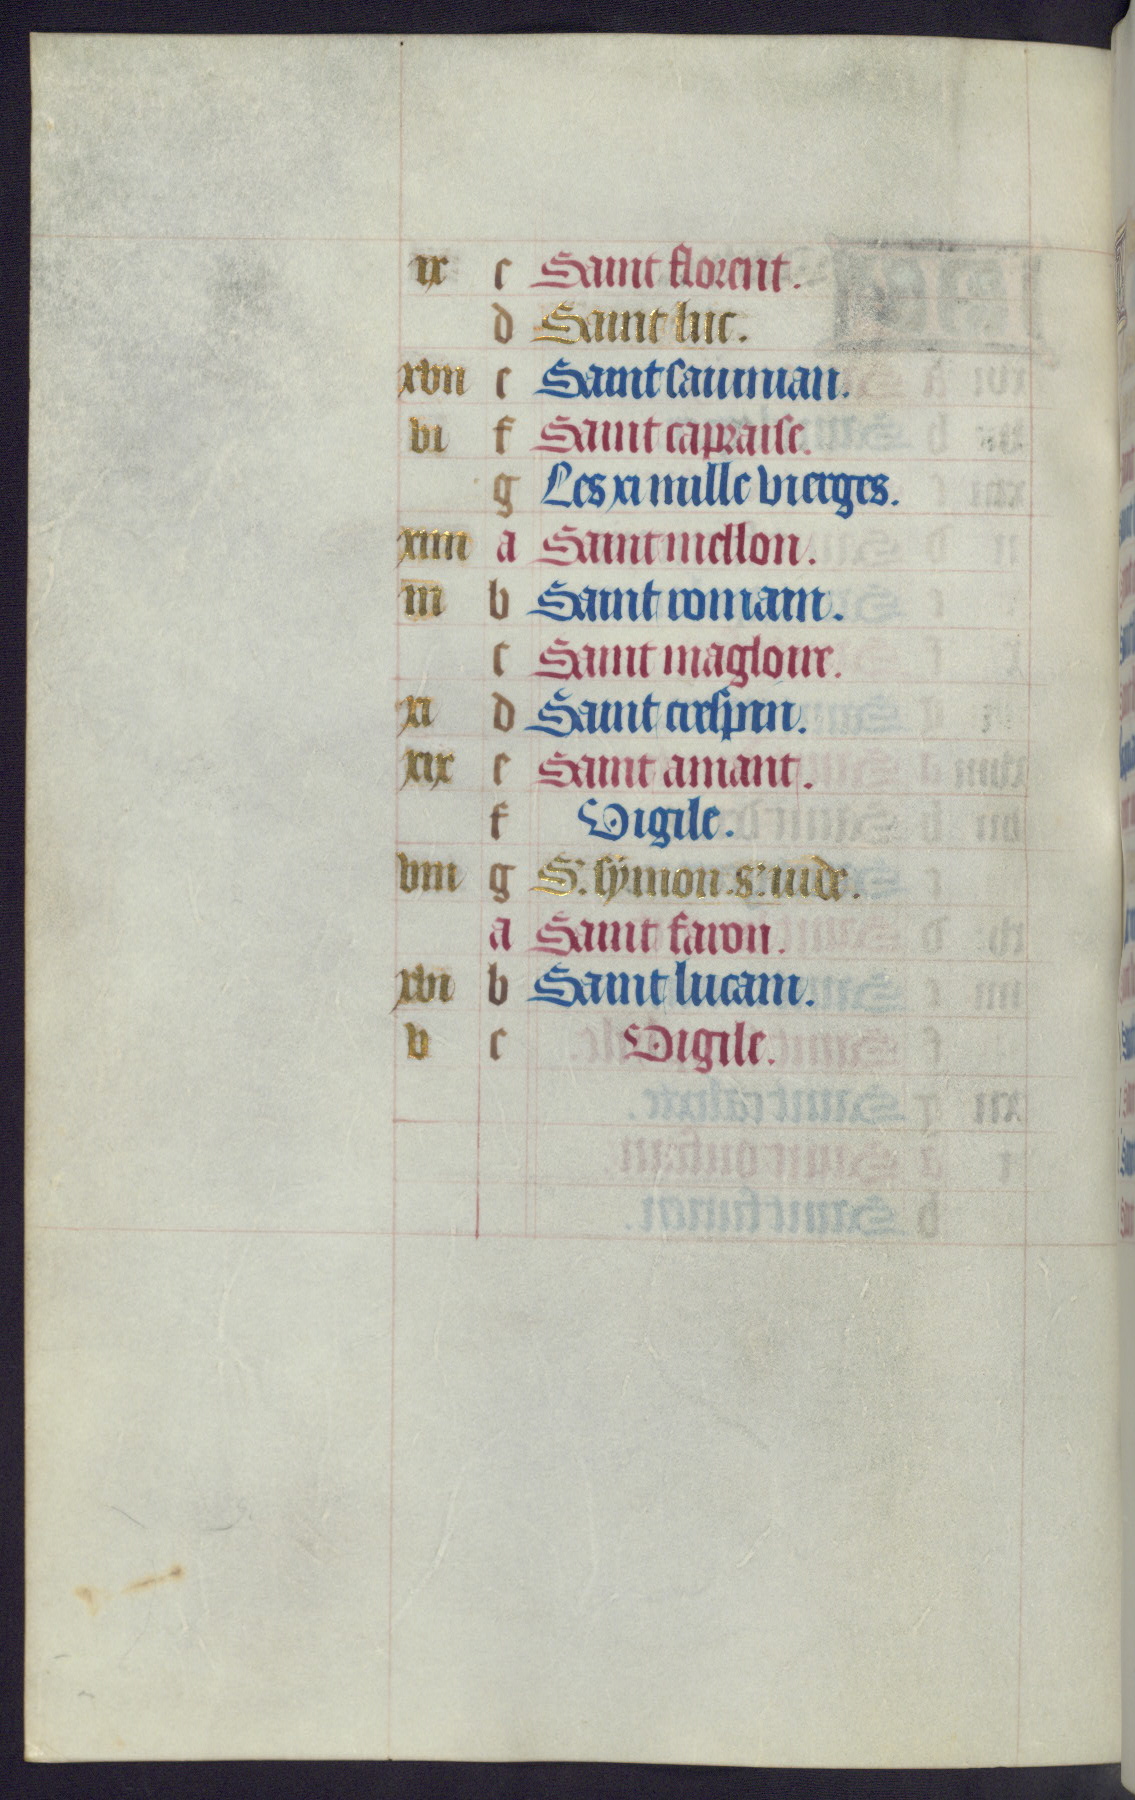 ix c Saint florent.
d Saint luc.
xvii e Saint sauinian.
vi f Saint capraise.
g Les xi mille vierges.
xiiii a Saint mellon.
iii b Saint romain.
c Saint magloire.
xi d Saint crespin.
xix e Saint amant.
f Vigile.
viii g S. symon. s. iude.
a Saint faron.
xvi b Saint lucain.
v c Vigile.